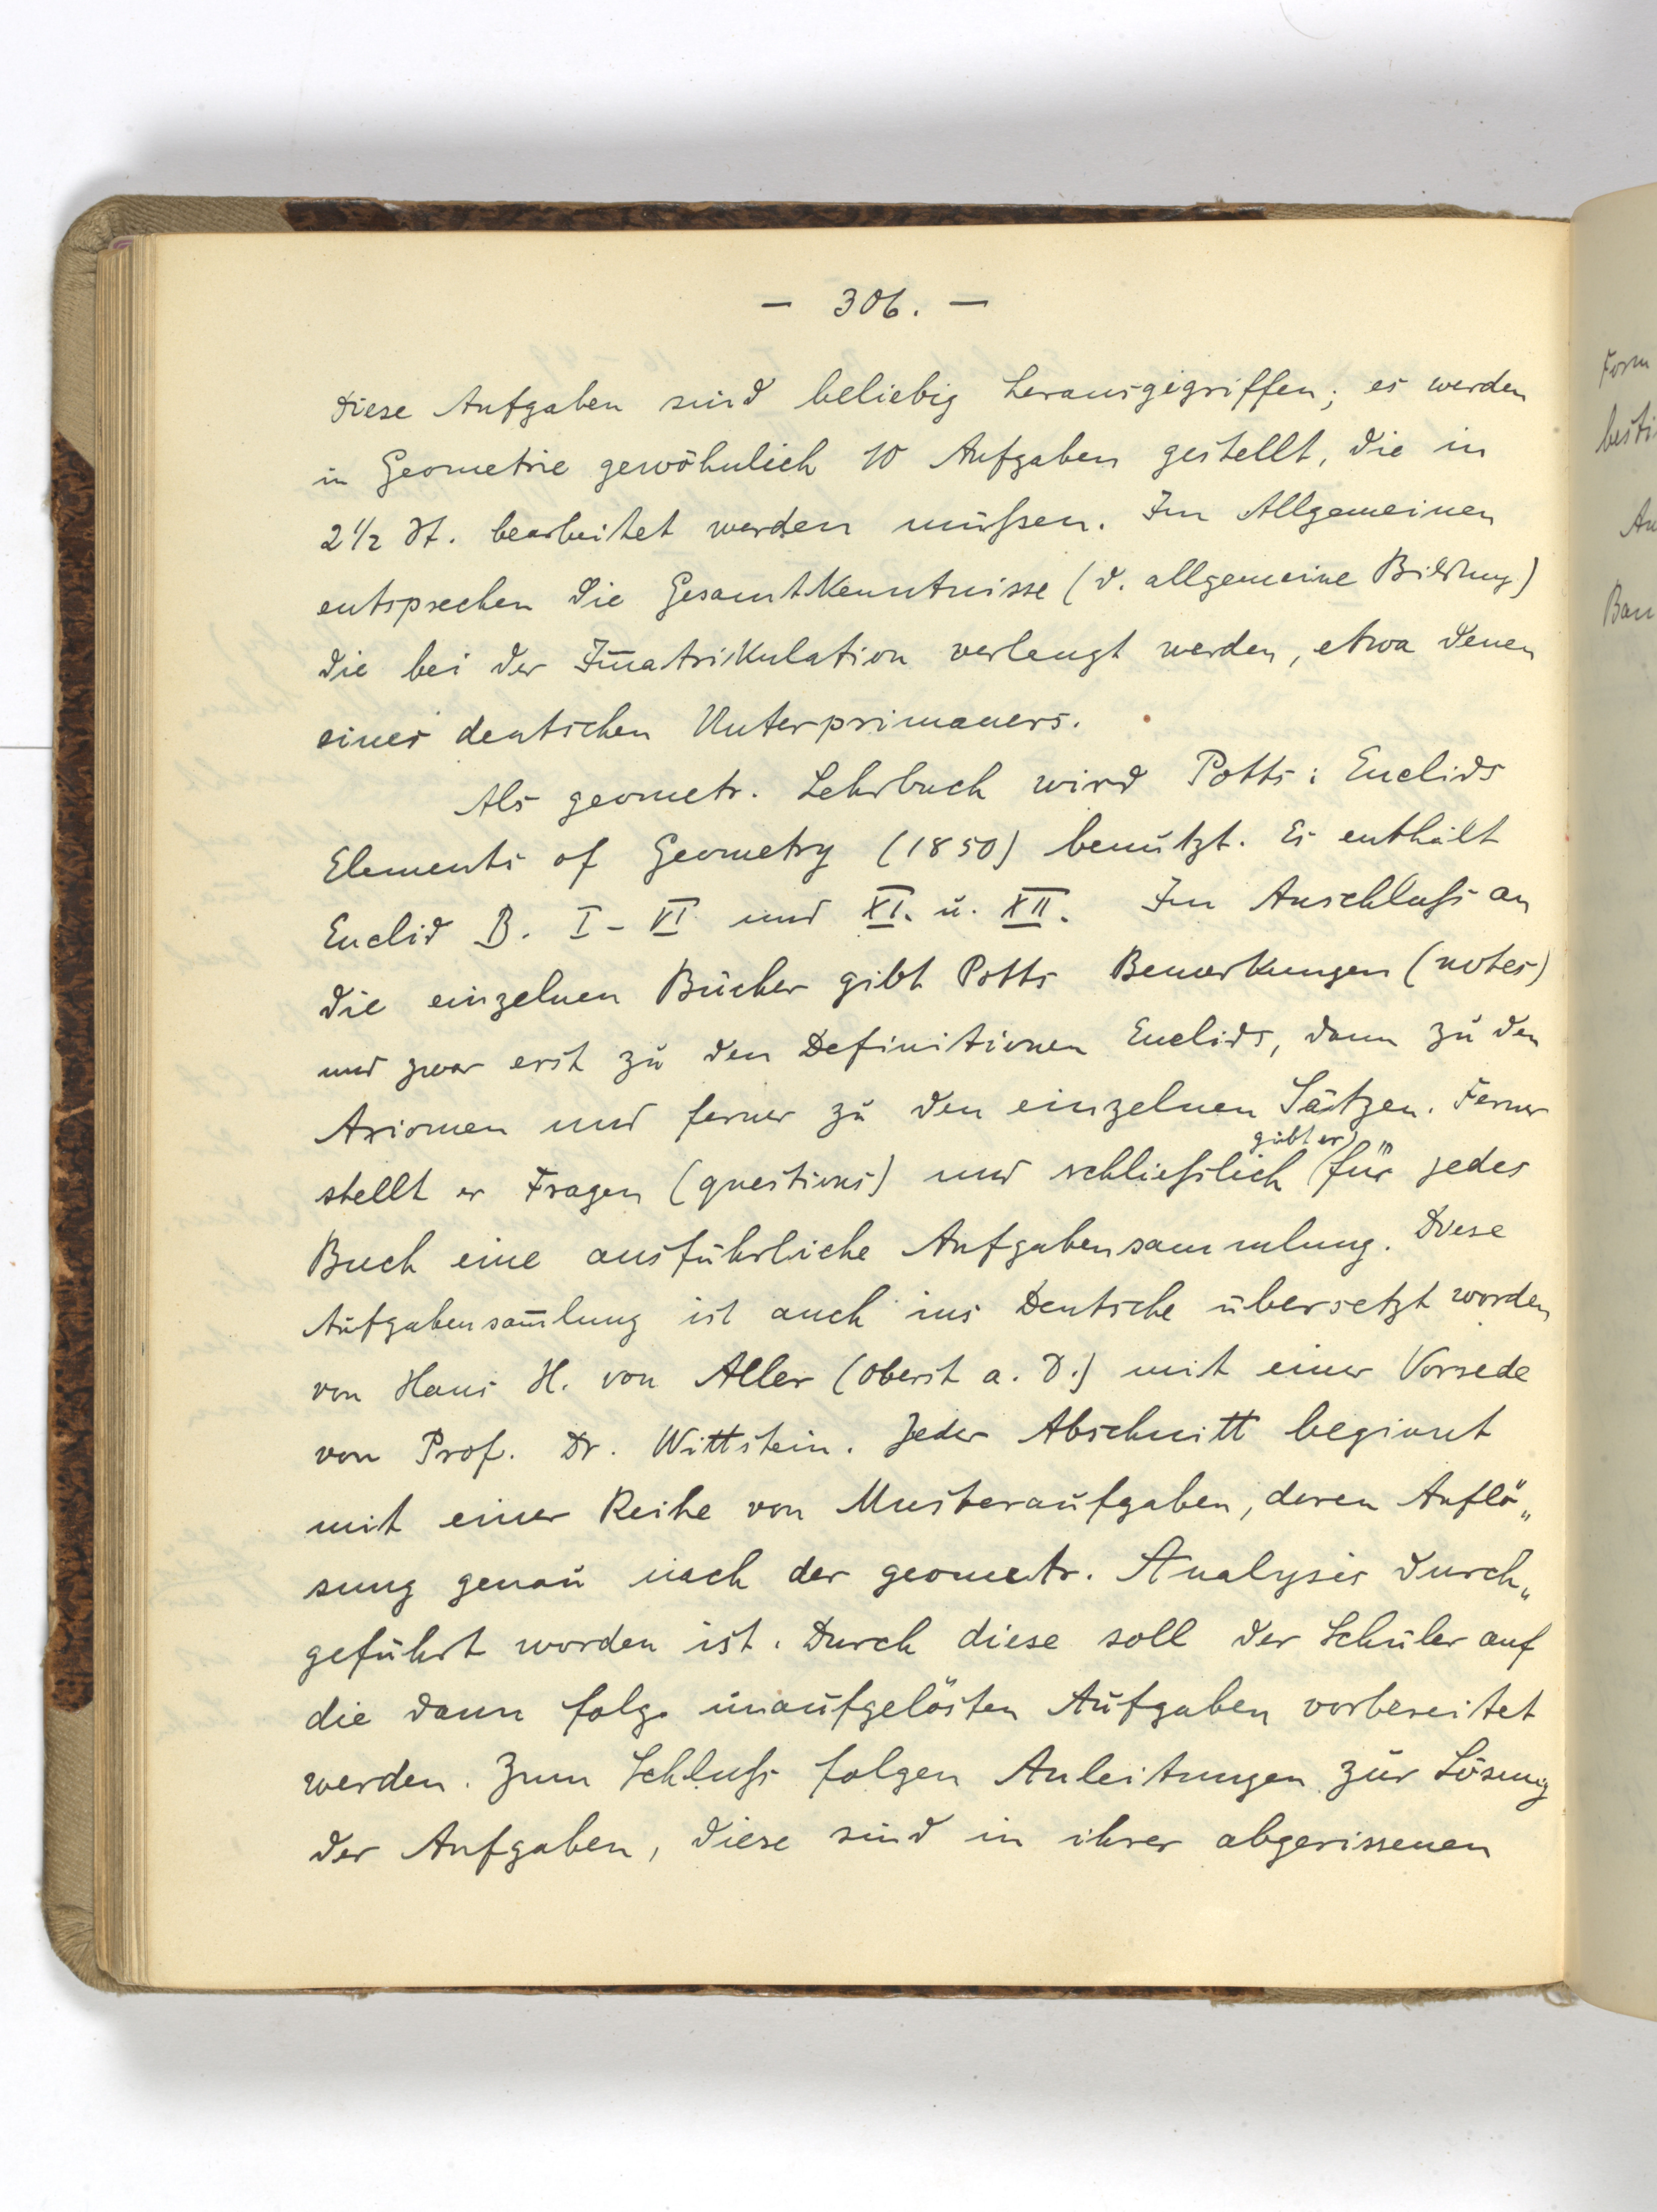 — 306. —
Diese Aufgaben sind beliebig herausgegriffen; es werden
in Geometrie gewöhnlich 10 Aufgaben gestellt, die in
2 1/2 St. bearbeitet werden müßen. Im Allgemeinen
entsprechen die Gesamtkenntnisse (d. allgemeine Bildung)
die bei der Im̄atrikulation verlangt werden, etwa denen
eines deutschen Unterprimaners.
Als geometr. Lehrbuch wird Potts: Euclids
Elements of Geometry (1850) benützt. Es enthält
Euclid B. I - VI und XI. u. XII. Im Anschluß an
die einzelnen Bücher gibt Potts Bemerkungen (notes)
und zwar erst zu den Definitionen Euclids, dann zu den
Axiomen und ferner zu den einzelnen Sätzen. Ferner
stellt er Fragen (questions) und schließlich gibt er für jedes
Buch eine ausführliche Aufgabensammlung. Diese
Aufgabensam̄lung ist auch ins Deutsche übersetzt worden
von Hans H. von Aller (Oberst a. D.) mit einer Vorrede
von Prof. Dr. Wittstein. Jeder Abschnitt beginnt
mit einer Reihe von Musteraufgaben, deren Auflö„
sung genau nach der geometr. Analysis durch„
geführt worden ist. Durch diese soll der Schüler auf
die dann folg. unaufgelösten Aufgaben vorbereitet
werden. Zum Schluß folgen Anleitungen zur Lösung
der Aufgaben, diese sind in ihrer abgerissenen
Form